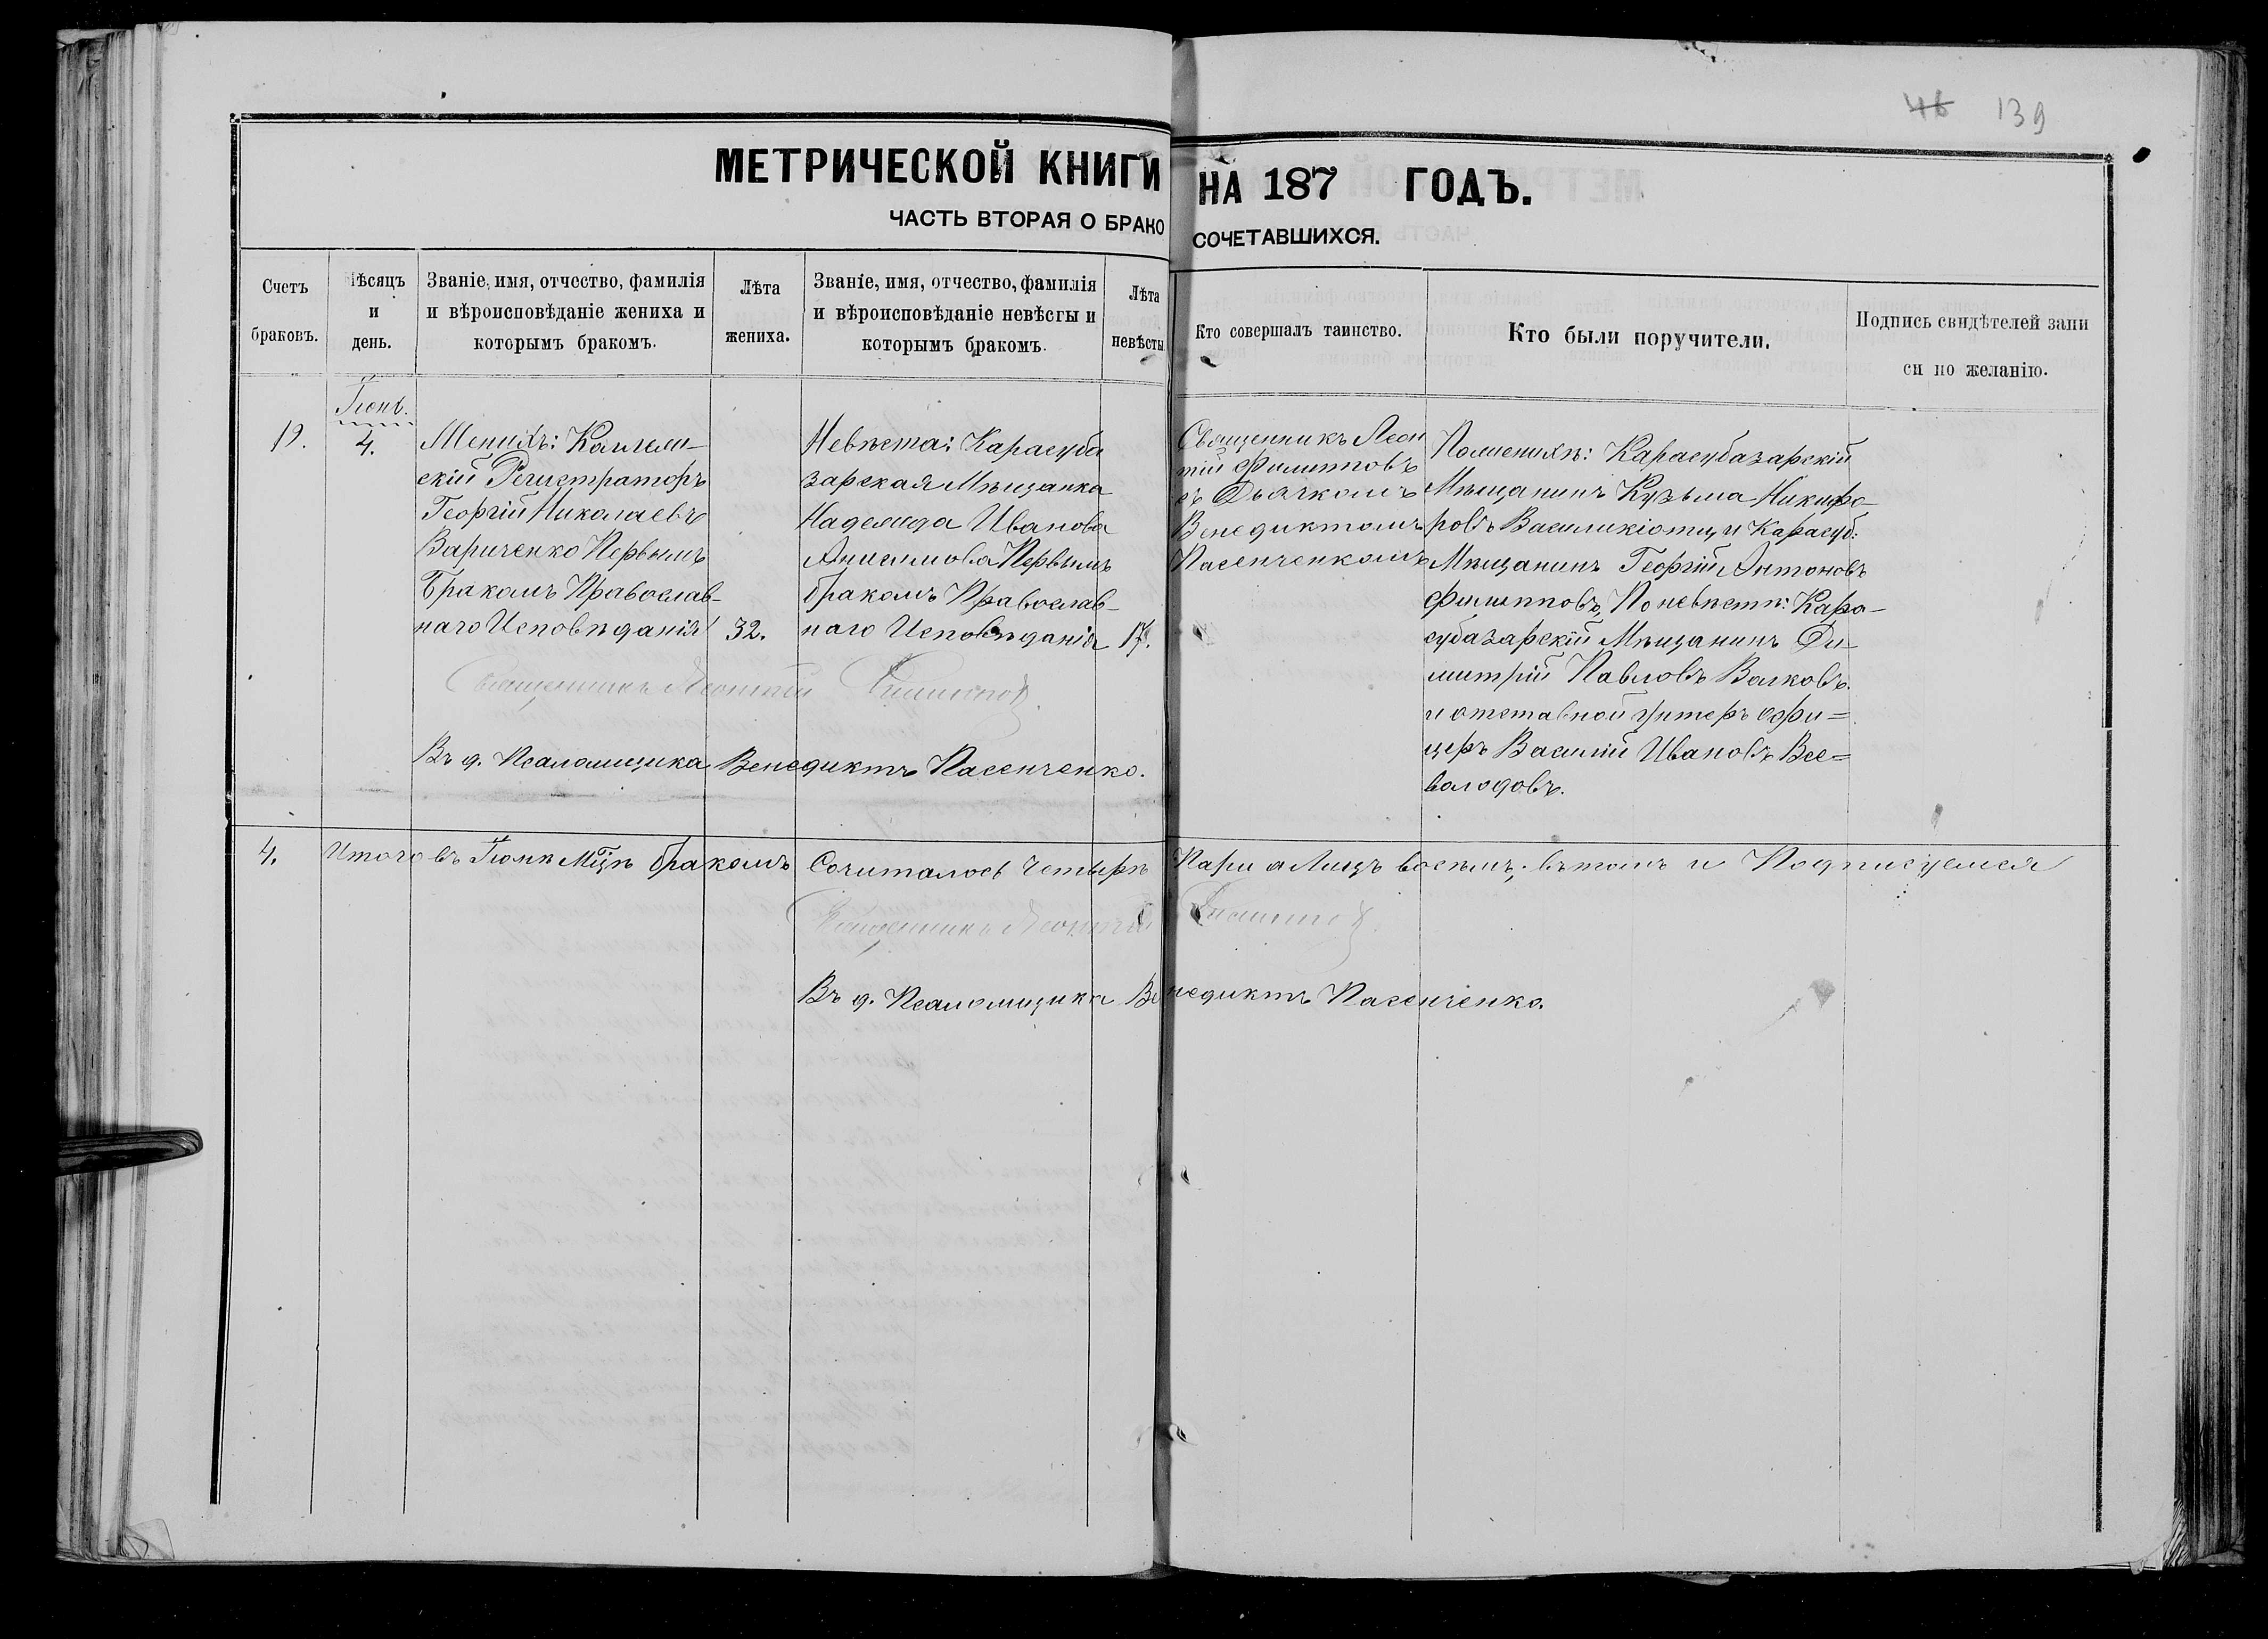 46 139
МЕТРИЧЕСКОЙ КНИГИ НА 187 ГОДЪ.
ЧАСТЬ ВТОРАЯ О БРАКОСОЧЕТАВШИХСЯ.
Счетъ
браковъ.
Мѣсяцъ
и
день.
Званіе, имя, отчество, фамилія
и вѣроисповѣданіе жениха и
которымъ бракомъ.
Лѣта
жениха.
Званіе, имя, отчество, фамилія
и вѣроисповѣданіе невѣсты и
которымъ бракомъ.
Лѣта
невѣсты
Кто совершалъ таинство.
Кто были поручители.
Подпись свидѣтелей запи
си по желанію.
19.
Іюнь.
4.
Женихъ: Коллеж-
скій Регистраторъ
Георгій Николаевъ
Вариченко Первымъ
Бракомъ Православ-
наго Исповѣданія
32.
Невѣста: Карасуба
зарская Мѣщанка
Надежда Иванова
Анисимова Первымъ
бракомъ Православ-
наго Исповѣданія
17.
Священникъ Леон
тій Филипповъ
съ Дьячкомъ
Венедиктомъ
Пасенченкомъ
По женихѣ: Карасубазарскій
Мѣщанинъ Кузьма Никифо-
ровъ Василикіоти, и Карасуб:
Мѣщанинъ Георгій Антоновъ
Филипповъ, По невѣстѣ: Кара-
субазарскій Мѣщанинъ Ди-
митрій Павловъ Волковъ.
и отставной Унтеръ Офи=
церъ Василій Ивановъ Все=
володовъ.
Священникъ Леонтій Филиппов
Въ д. Псаломщика Венедиктъ Пасенченко.
4. Итого въ Іюнѣ Мцѣ бракомъ Сочиталось Четырѣ Пари а Лицъ восемъ; въ томъ и Подписуемся
Священникъ Леонтій Филиппов
Въ д. Псаломщика Венедиктъ Пасенченко.